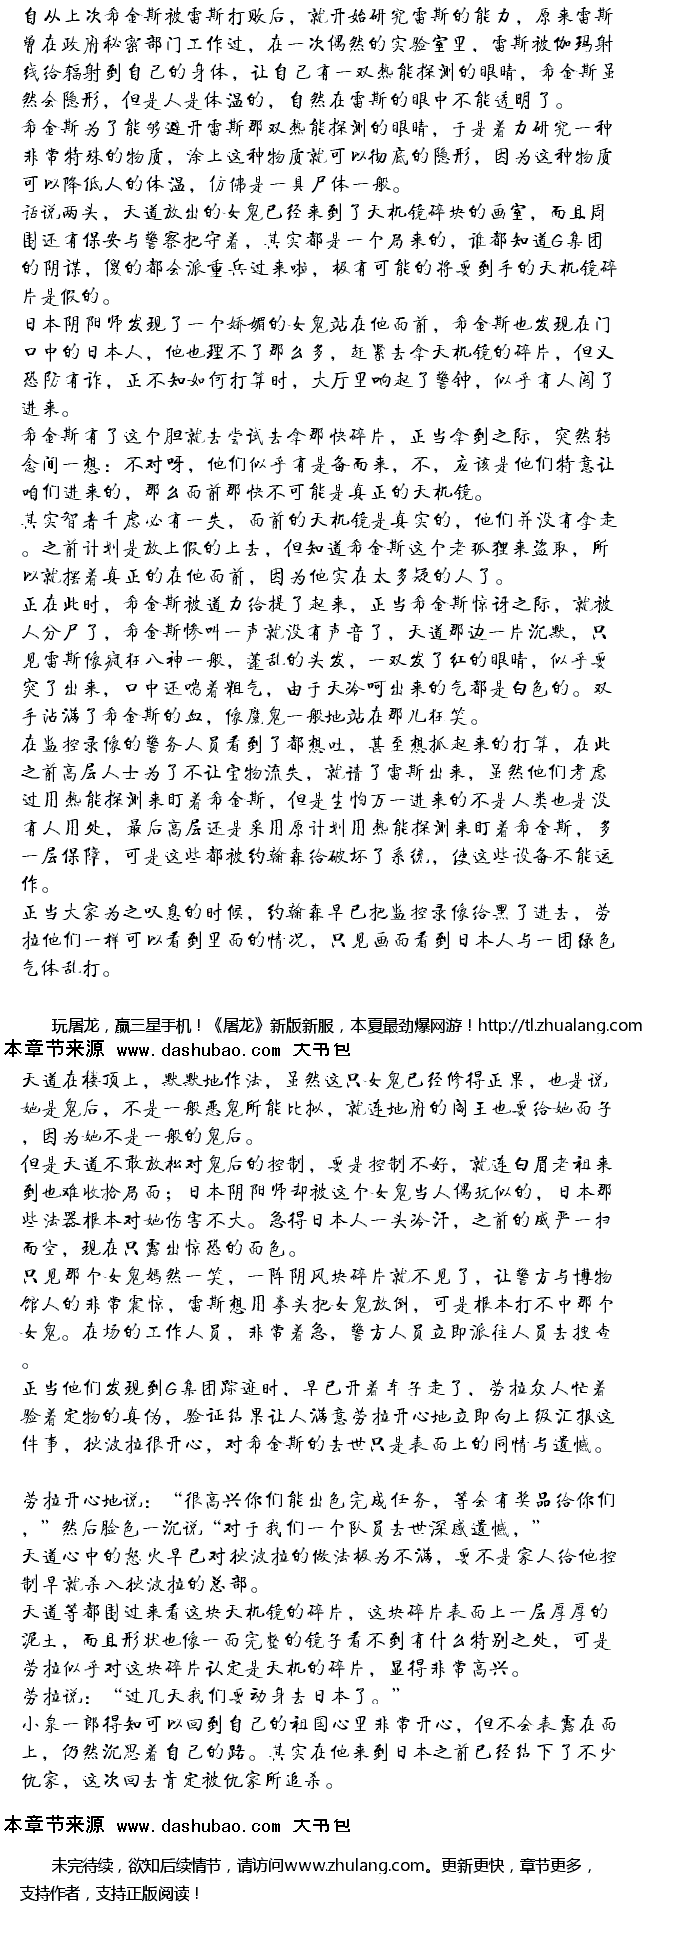 自从上次希金斯被雷斯打败后，就开始研究雷斯的能力，原来雷斯
曾在政府秘密部门工作过，在一次偶然的实验室里，雷斯被伽玛射
线给辐射到自己的身体，让自己有一双热能探测的眼睛，希金斯虽
然会隐形，但是人是体温的，自然在雷斯的眼中不能透明了。
希金斯为了能够避开雷斯那双热能探测的眼睛，于是着力研究一种
非常特殊的物质，涂上这种物质就可以彻底的隐形，因为这种物质
可以降低人的体温，仿佛是一具尸体一般。
话说两头，天道放出的女鬼已经来到了天机镜碎块的画室，而且周
围还有保安与警察把守着，其实都是一个局来的，谁都知道G集团
的阴谋，傻的都会派重兵过来啦，极有可能的将要到手的天机镜碎
片是假的。
日本阴阳师发现了一个娇媚的女鬼站在他面前，希金斯也发现在门
口中的日本人，他也理不了那么多，赶紧去拿天机镜的碎片，但又
恐防有诈，正不知如何打算时，大厅里响起了警钟，似乎有人闯了
进来。
希金斯有了这个胆就去尝试去拿那快碎片，正当拿到之际，突然转
念间一想：不对呀，他们似乎有是备而来，不，应该是他们特意让
咱们进来的，那么面前那快不可能是真正的天机镜。
其实智者千虑必有一失，面前的天机镜是真实的，他们并没有拿走
。之前计划是放上假的上去，但知道希金斯这个老狐狸来盗取，所
以就摆着真正的在他面前，因为他实在太多疑的人了。
正在此时，希金斯被道力给提了起来，正当希金斯惊讶之际，就被
人分尸了，希金斯惨叫一声就没有声音了，天道那边一片沉默，只
见雷斯像疯狂八神一般，蓬乱的头发，一双发了红的眼睛，似乎要
突了出来，口中还喘着粗气，由于天冷呵出来的气都是白色的。双
手沾满了希金斯的血，像魔鬼一般地站在那儿狂笑。
在监控录像的警务人员看到了都想吐，甚至想抓起来的打算，在此
之前高层人士为了不让宝物流失，就请了雷斯出来，虽然他们考虑
过用热能探测来盯着希金斯，但是生怕万一进来的不是人类也是没
有人用处，最后高层还是采用原计划用热能探测来盯着希金斯，多
一层保障，可是这些都被约翰森给破坏了系统，使这些设备不能运
作。
正当大家为之叹息的时候，约翰森早已把监控录像给黑了进去，劳
拉他们一样可以看到里面的情况，只见画面看到日本人与一团绿色
气体乱打。
玩屠龙，赢三星手机！《屠龙》新版新服，本夏最劲爆网游！http://tl.zhualang.com
本章节来源 www.dashubao.com 大书包
天道在楼顶上，默默地作法，虽然这只女鬼已经修得正果，也是说
她是鬼后，不是一般恶鬼所能比拟，就连地府的阎王也要给她面子
，因为她不是一般的鬼后。
但是天道不敢放松对鬼后的控制，要是控制不好，就连白眉老祖来
到也难收拾局面；日本阴阳师却被这个女鬼当人偶玩似的，日本那
些法器根本对她伤害不大。急得日本人一头冷汗，之前的威严一扫
而空，现在只露出惊恐的面色。
只见那个女鬼嫣然一笑，一阵阴风块碎片就不见了，让警方与博物
馆人的非常震惊，雷斯想用拳头把女鬼放倒，可是根本打不中那个
女鬼。在场的工作人员，非常着急，警方人员立即派往人员去搜查
。
正当他们发现到G集团踪迹时，早已开着车子走了，劳拉众人忙着
验着定物的真伪，验证结果让人满意劳拉开心地立即向上级汇报这
件事，狄波拉很开心，对希金斯的去世只是表面上的同情与遗憾。
劳拉开心地说：“很高兴你们能出色完成任务，等会有奖品给你们
，”然后脸色一沉说“对于我们一个队员去世深感遗憾，”
天道心中的怒火早已对狄波拉的做法极为不满，要不是家人给他控
制早就杀入狄波拉的总部。
天道等都围过来看这块天机镜的碎片，这块碎片表面上一层厚厚的
泥土，而且形状也像一面完整的镜子看不到有什么特别之处，可是
劳拉似乎对这块碎片认定是天机的碎片，显得非常高兴。
劳拉说：“过几天我们要动身去日本了。”
小泉一郎得知可以回到自己的祖国心里非常开心，但不会表露在面
上，仍然沉思着自己的路。其实在他来到日本之前已经结下了不少
仇家，这次回去肯定被仇家所追杀。
本章节来源 www.dashubao.com 大书包
未完待续，欲知后续情节，请访问www.zhulang.com。更新更快，章节更多，
支持作者，支持正版阅读！